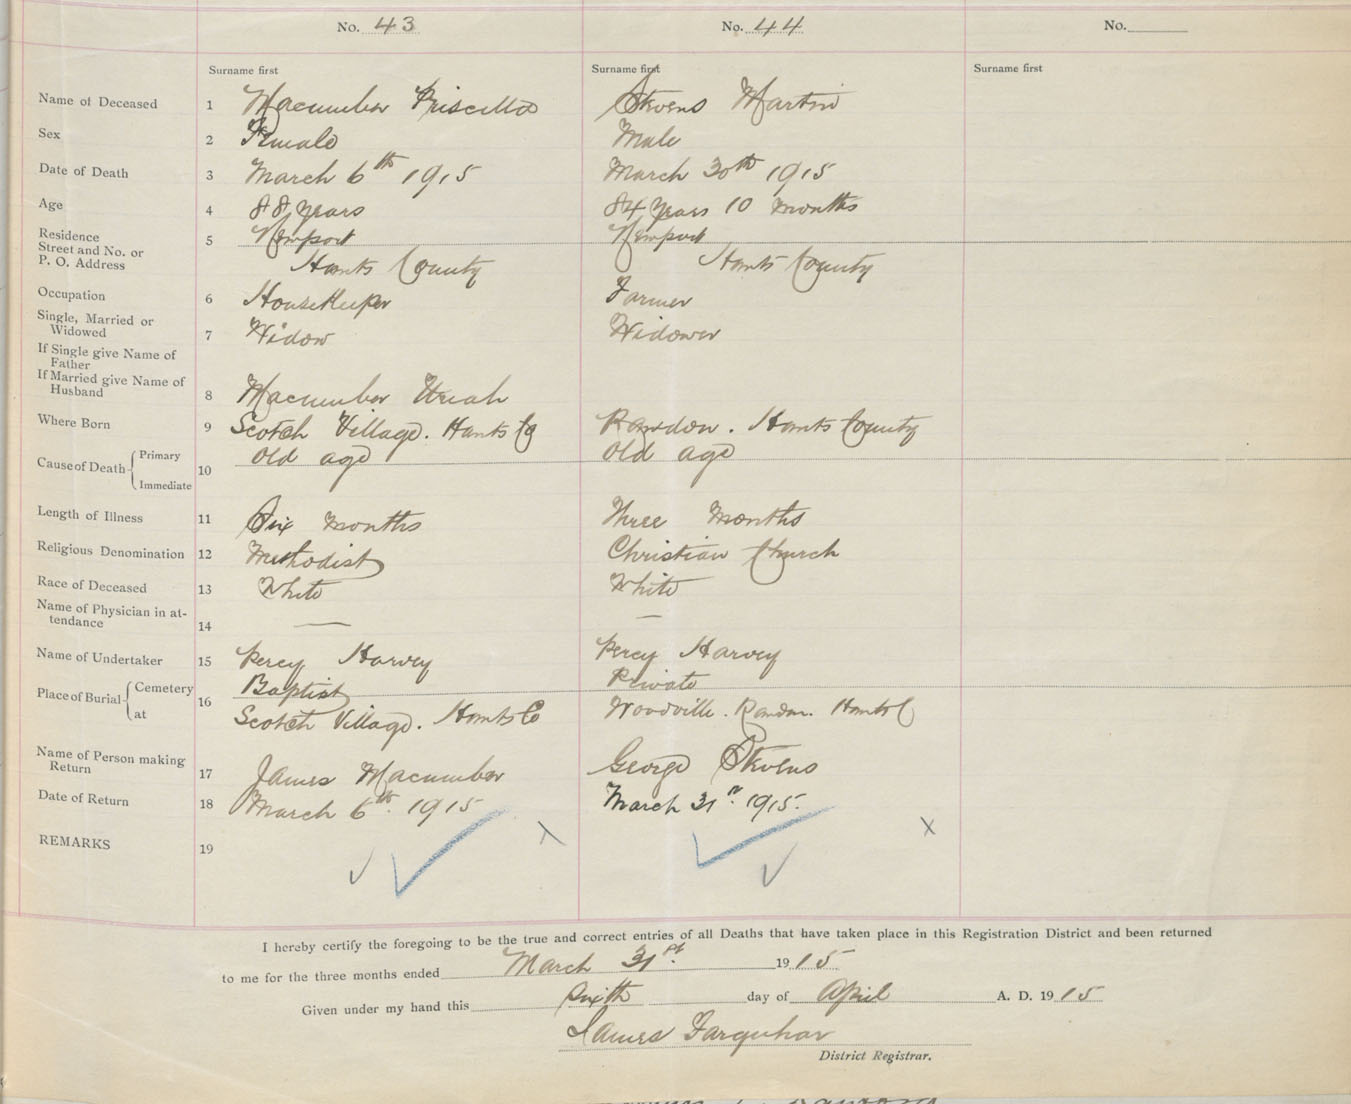 No. 43 No. 44 No.
Surname first Surname first Surname first
Name of Deceased 1 Macumber Priscilla Stevens Martin
Sex 2 Female Male
Date of Death 3 March 6th 1915 March 30th 1915
Age 4 88 years 84 years 10 months
Residence 5 Newport Newport
Street and No. or
P. O. Address Hants County Hants County
Occupation 6 HouseKeeper Farmer
Single, Married or
Widowed 7 Widow Widower
If Single give Name of
Father
If Married give Name of
Husband 8 Macumber Uriah
Where Born 9 Scotch Village. Hants Co Rawdon. Hants County
Cause of Death Primary 10 Old age Old age
Immediate
Length of Illness 11 Six months Three months
Religious Denomination 12 Methodist Christian Church
Race of Deceased 13 White White
Name of Physician in at-
tendance 14 — —
Name of Undertaker 15 Percy Harvey Percy Harvey
Place of Burial Cemetery 16 Baptist Private
at Scotch Village. Hants Co Woodville. Rawdon. Hants C
Name of Person making
Return 17 James Macumber George Stevens
Date of Return 18 March 6th. 1915 March 31st. 1915.
REMARKS 19
I hereby certify the foregoing to be the true and correct entries of all Deaths that have taken place in this Registration District and been returned
to me for the three months ended March 31st. 1915
Given under my hand this Sixth day of April A. D. 1915
James Farquhar
District Registrar.